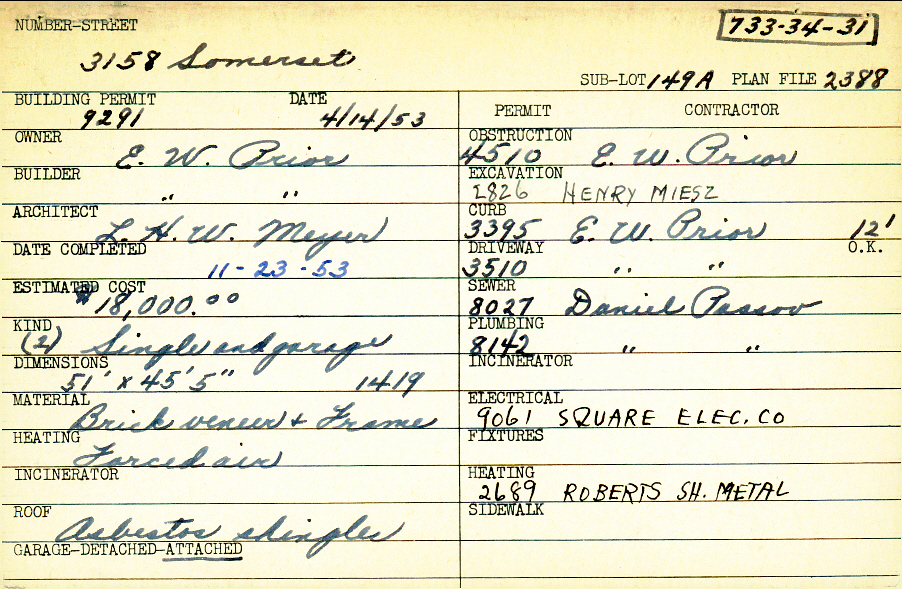 NUMBER-STREET
733-34-31
3158 Somerset
SUB-LOT 149A PLAN FILE 2388
BUILDING PERMIT DATE
9291 4/14/53
OWNER
E. W. Prior
BUILDER
" "
ARCHITECT
L. H. W. Meyer
DATE COMPLETED
11-23-53
ESTIMATED COST
$18,000.00
KIND
(2) Single and garage
DIMENSIONS
51' x 45'5" 1419
MATERIAL
Brick veneer & Frame
HEATING
Forced air
INCINERATOR
ROOF
Asbestos shingles
GARAGE-DETACHED-ATTACHED
PERMIT CONTRACTOR
OBSTRUCTION
4510 E. W. Prior
EXCAVATION
HENRY MIESZ
CURB
3395 E. W. Prior 12'
DRIVEWAY O.K.
3510 " "
SEWER
8027 Daniel Passov
PLUMBING
8142 " "
INCINERATOR
ELECTRICAL
9061 SQUARE ELEC. CO
FIXTURES
HEATING
2689 ROBERTS SH. METAL
SIDEWALK